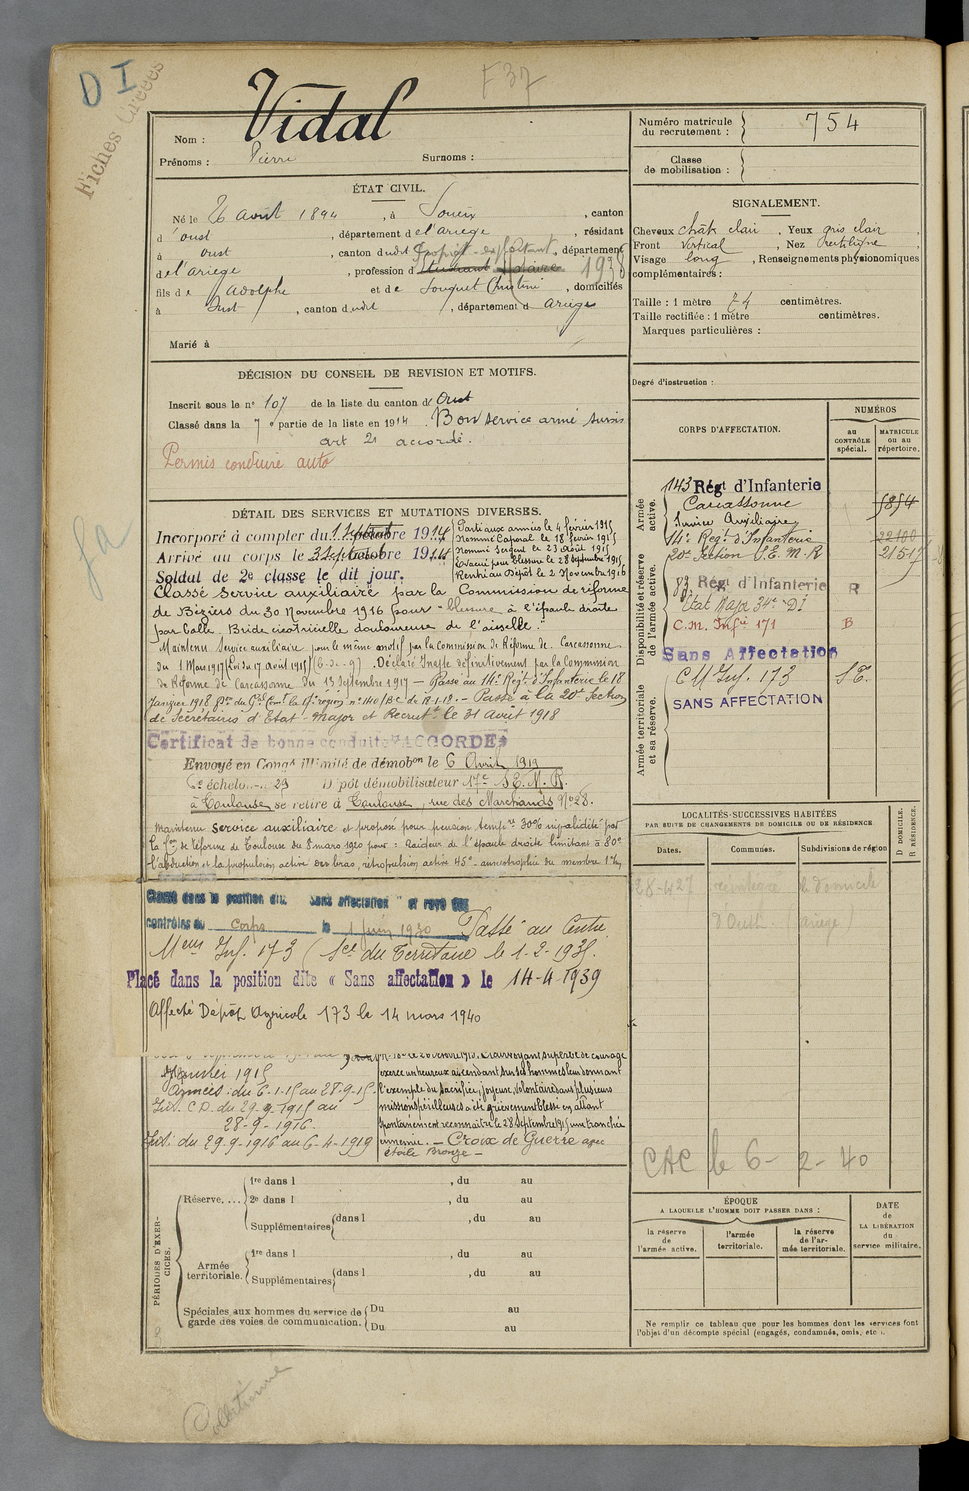 D I
Fiches Créées
F 37
Nom : Vidal
Prénoms : Pierre Surnoms :
ÉTAT CIVIL.
Né le 26 août 1894, à Soueix, canton
d'oust, département de l'ariege, résidant
à oust, canton dudit, département
de l'ariege, profession d étudiant 1938
fils de Adolphe et de Souquet Christine, domiciliés
à Oust, canton dudit, département d ariège
Marié à
DÉCISION DU CONSEIL DE REVISION ET MOTIFS.
Inscrit sous le n° 107 de la liste du canton d'Oust
Classé dans la 7e partie de la liste en 1914. Bon service armé sursis
art 21 accordé.
Permis conduire auto
DÉTAIL DES SERVICES ET MUTATIONS DIVERSES.
Incorporé à compter du 1 Septembre 1914
Arrivé au corps le 3 Septembre 1914
Soldat de 2e classe le dit jour.
Parti aux armées le 4 février 1915
Nommé Caporal le 18 février 1915
Nommé Sergent le 23 Août 1915
Evacué pour blessure le 28 Septembre 1915
Rentré au Dépôt le 2 Novembre 1916
Classé Service auxiliaire par la Commission de réforme
de Béziers du 30 Novembre 1916 pour "blessure à l'épaule droite
par balle. Bride cicatricielle douloureuse de l'aisselle."
Maintenu Service auxiliaire pour le même motif par la Commission de Réforme de Carcassonne
du 1 Mars 1917 (Loi du 17 août 1915) Déclaré Inapte définitivement par la Commission
de Réforme de Carcassonne du 13 Septembre 1917 — Passé au 14e Régt d'Infanterie le 18
Janvier 1918 — Passé à la 20e Section
de Secrétaires d'Etat-Major et Recrutt le 31 août 1918
Certificat de bonne conduite "ACCORDÉ"
Envoyé en Congé illimité de démobon le 6 Avril 1919
échelon n° 29 Dépôt démobilisateur 17e S.E.M.R.
à Toulouse se retire à Toulouse, rue des Marchands N° 28.
Maintenu service auxiliaire et proposé pour pension tempre 30% invalidité par
la Con de Réforme de Toulouse du 8 mars 1920 pour : Raideur de l'épaule droite limitant à 80°
l'abduction et la propulsion active des bras, rétropulsion active 45°
Classé dans la position dite "Sans affectation" et rayé des
contrôles du Corps le 1 Juin 1930 Passé au Centre
Mem Inf. 173 (Sce du Territoire le 1-2-1935.
Placé dans la position dite « Sans affectation » le 14-4-1939
Affecté Dépôt Agricole 173 le 14 mars 1940
Janvier 1915
Armées : du 6-1-15 au 28-9-15.
Int. C.D. du 29-9-1915 au
28-9-1916.
Int. du 29-9-1916 au 6-4-1919
Clairvoyant, superbe de courage
exerce un heureux ascendant sur ses hommes leur donnant
l'exemple du sacrifice, joyeux, volontaire dans plusieurs
missions périlleuses a été grièvement blessé en allant
spontanément reconnaître le 28 Septembre 1915 une tranchée
ennemie. — Croix de Guerre avec
étoile Bronze —
PÉRIODES D'EXERCICES.
Réserve.... 1re dans l , du au
2e dans l , du au
Supplémentaires dans l , du au
Armée territoriale. 1re dans l , du au
Supplémentaires dans l , du au
Spéciales aux hommes du service de
garde des voies de communication. Du au
Du au
Numéro matricule
du recrutement : 754
Classe
de mobilisation :
SIGNALEMENT.
Cheveux chât clair. Yeux gris clair,
Front vertical, Nez rectiligne
Visage long, Renseignements physionomiques
complémentaires :
Taille : 1 mètre 74 centimètres.
Taille rectifiée : 1 mètre centimètres.
Marques particulières :
Degré d'instruction :
CORPS D'AFFECTATION.
NUMÉROS
au
CONTRÔLE
spécial.
MATRICULE
ou au
répertoire.
Armée active.
143 Régt d'Infanterie
Carcassonne 5854
Service Auxiliaire
14e Régt d'Infanterie 22100
20e Section S.E.M.R 21517
Disponibilité et réserve de l'armée active.
83 Régt d'Infanterie R
Etat Major 34e DI
C.M. Infie 171 B
Sans Affectation
Armée territoriale et sa réserve.
CM Inf. 173 S.T.
SANS AFFECTATION
LOCALITÉS SUCCESSIVES HABITÉES
PAR SUITE DE CHANGEMENTS DE DOMICILE OU DE RÉSIDENCE
Dates. Communes. Subdivisions de région
D DOMICILE.
R RÉSIDENCE.
28-4-27 réintègre le domicile
d'Oust. Ariège
CAC le 6-2-40
ÉPOQUE
A LAQUELLE L'HOMME DOIT PASSER DANS :
la réserve
de
l'armée active.
l'armée
territoriale.
la réserve
de l'ar-
mée territoriale.
DATE
de
LA LIBÉRATION
du
service militaire.
Ne remplir ce tableau que pour les hommes dont les services font
l'objet d'un décompte spécial (engagés, condamnés, omis, etc.).